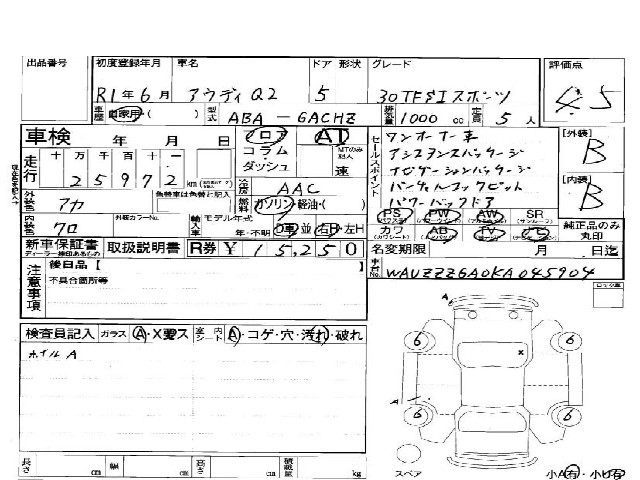 出品番号 初度登録年月 車名 ドア 形状 グレード 評価点
R1年6月 アウディQ2 5 30TFSIスポーツ 4.5
車歴 自家用・( ) 型式 ABA-GACHZ 排気量 1000 cc 定員 5人
車検 年 月 日 フロア コラム ダッシュ AT MTのみ記入 速
セールスポイント
ワンオーナー車
アシスタンスパッケージ
ナビゲーションパッケージ
バーチャルコックピット
パワーバックドア
[外装] B
[内装] B
走行 十万千百十一
25972 km
冷房 AAC
外装色 アカ 色替車は色替と記入 燃料 ガソリン・軽油・( )
内装色 クロ 外装カラーNo. 輸入車 モデル年式 年・不明 D車 並 右H・左H
PS PW AW SR
カワ AB TV
純正品のみ丸印
新車保証書 取扱説明書 R券 ¥15,250
ディーラー捺印あるもの
名変期限 月 日迄
車台No. WAUZZZGA0KA045904
注意事項 後日品【 】
不具合箇所等
検査員記入 ガラス A・X要ス 室内シート A・コゲ・穴・汚れ・破れ
ホイルA
A
6 6
x
A
6 6
長さ cm 幅 cm 高さ cm 積載量 kg
スペア 小A有・小U有